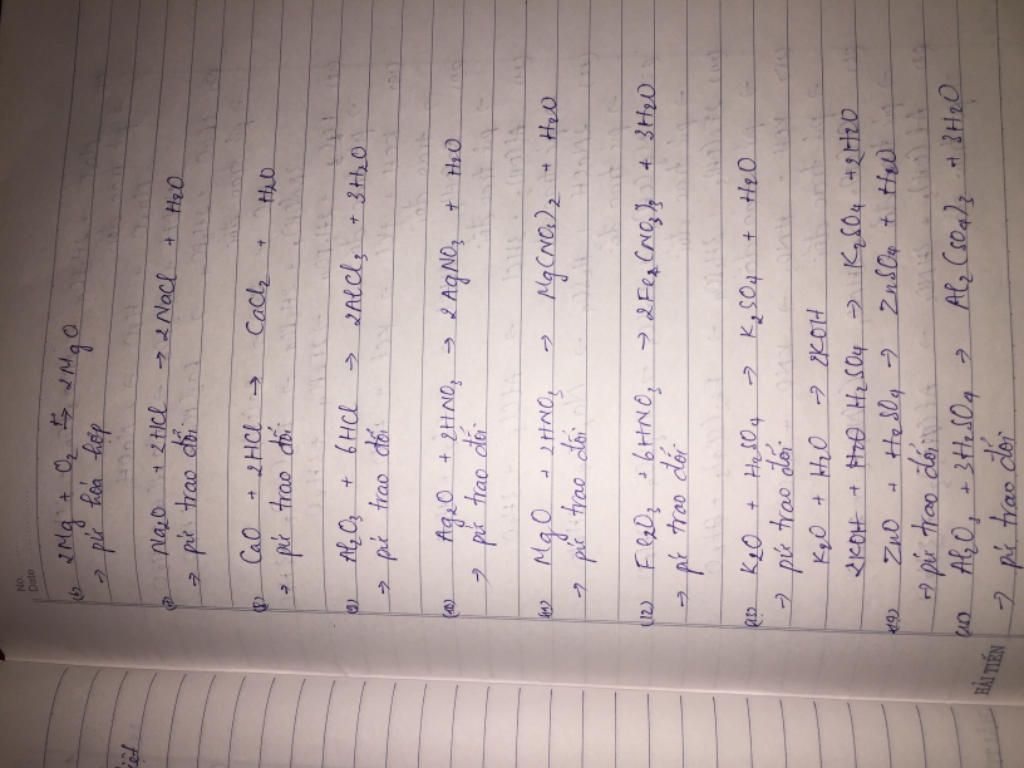 No.
Date
(6) 2Mg + O₂ →t° 2MgO
→ pứ hóa hợp
(7) Na₂O + 2HCl → 2NaCl + H₂O
→ pứ trao đổi
(8) CaO + 2HCl → CaCl₂ + H₂O
→ pứ trao đổi
(9) Al₂O₃ + 6HCl → 2AlCl₃ + 3H₂O
→ pứ trao đổi
(10) Ag₂O + 2HNO₃ → 2AgNO₃ + H₂O
→ pứ trao đổi
(11) MgO + 2HNO₃ → Mg(NO₃)₂ + H₂O
→ pứ trao đổi
(12) Fe₂O₃ + 6HNO₃ → 2Fe(NO₃)₃ + 3H₂O
→ pứ trao đổi
(13) K₂O + H₂SO₄ → K₂SO₄ + H₂O
→ pứ trao đổi
K₂O + H₂O → 2KOH
2KOH + H₂SO₄ → K₂SO₄ + 2H2O
(14) ZnO + H₂SO₄ → ZnSO₄ + H₂O
→ pứ trao đổi
(15) Al₂O₃ + 3H₂SO₄ → Al₂(SO₄)₃ + 3H₂O
→ pứ trao đổi
HẢI TIẾN